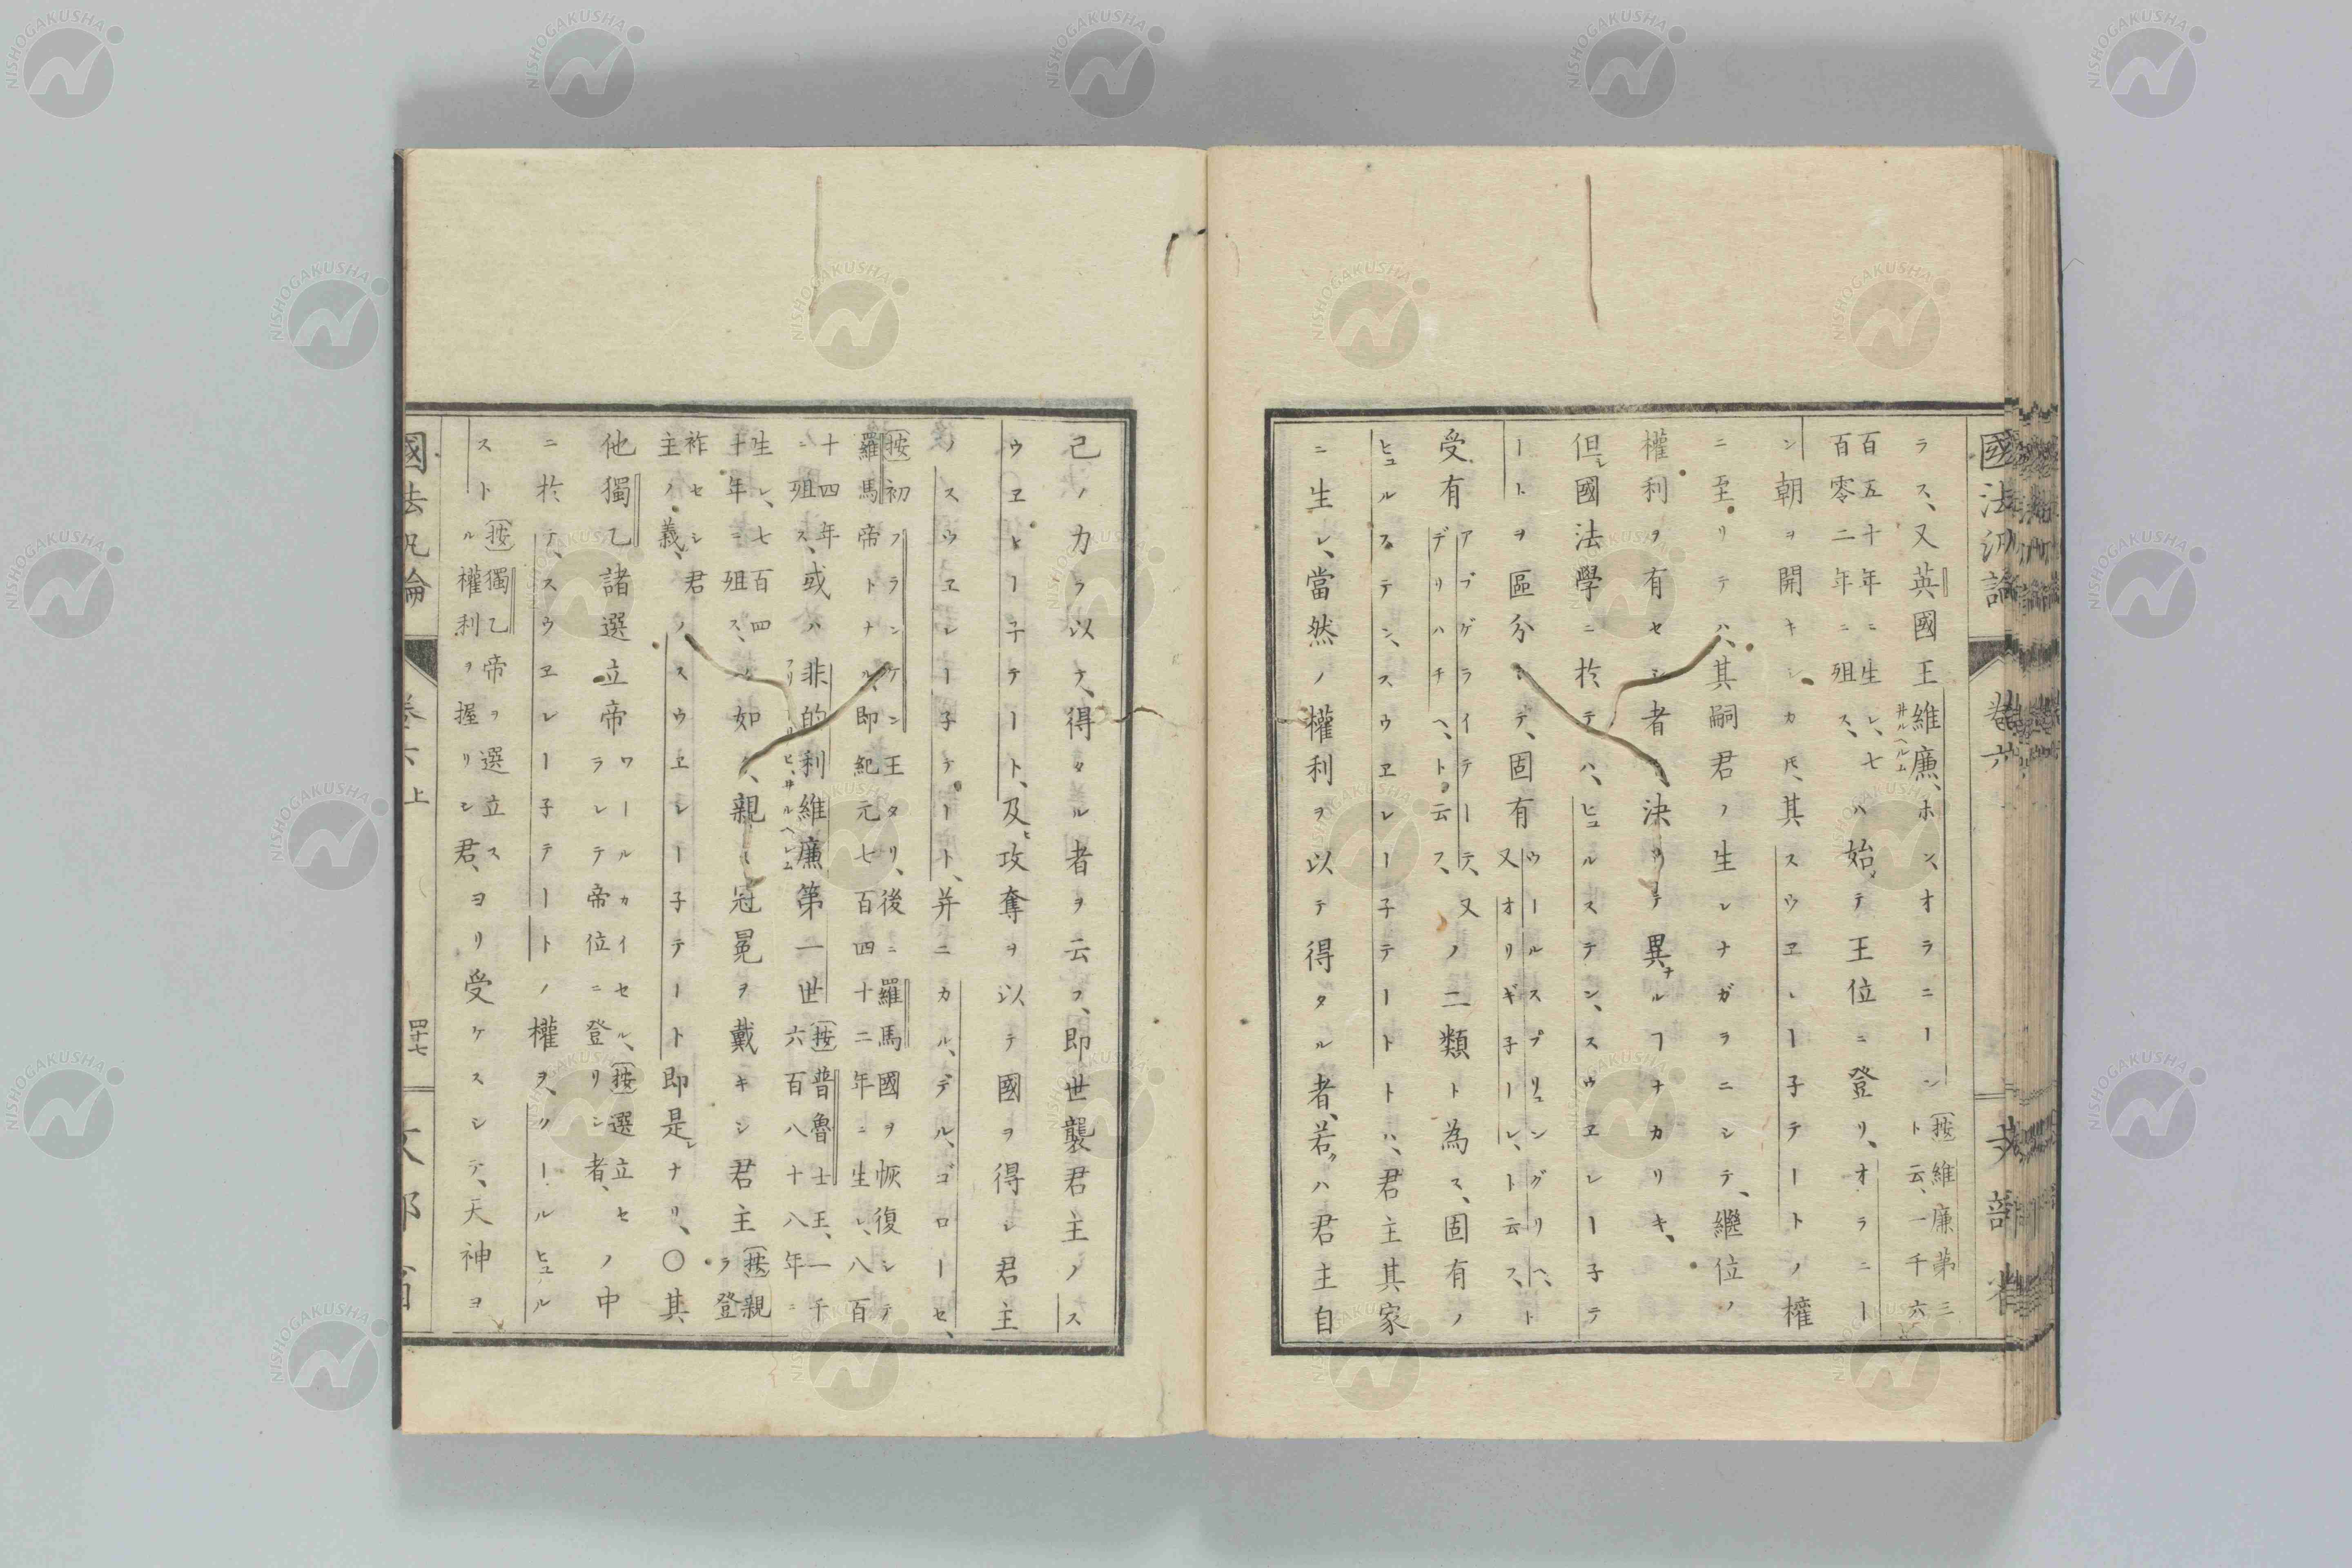 國法汎論 卷六 文部省
ラス、又英國王維廉、ホン、オラニーン〔按〕維廉第三ト云、一千六
百五十年ニ生レ、七百零二年ニ殂ス、ハ始テ王位ニ登リ、オラニー
ン朝ヲ開キシカ𪜈、其スウヱレー子テートノ權
ニ至リテハ、其嗣君ノ生レナガラニシテ、繼位ノ
權利ヲ有セシ者ト、決シテ異ナルヿナカリキ、
但シ國法學ニ於テハ、ヒュルステン、スウヱレー子テ
ートヲ區分シテ、固有ウールスプリュングリヘ、ト又オリギ子ーレ、ト云フ、ト
受有アブゲライテーテ、又デリハチヘ、ト云フ、ノ二類ト為ス、固有ノ
ヒュルステン、スウヱレー子テートトハ、君主其家
ニ生レ、當然ノ權利ヲ以テ得タル者、若クハ君主自
己ノカラ以テ、得タル者ヲ云フ、即世襲君主ノス
ウヱレー子テート、及ヒ攻奪ヲ以テ國ヲ得シ君主
ノスウヱレー子テート、并ニカル、デル、ゴローセ、
〔按〕初フランケン王タリ、後ニ羅馬國ヲ恢復シテ羅馬帝トナル、即紀元七百四十二年ニ生レ、八百
十四年ニ殂ス、或ハ非的利維廉第一世〔按〕普魯士王、一千六百八十八年ニ
フリードリヒ、ヰルヘルム
生レ、七百四十年ニ殂ス、ノ如ク、親ラ冠冕ヲ戴キシ君主〔按〕親ラ登
祚セシ君主ノ義、ノスウヱレー子テート即是レナリ、〇其
他獨乙諸選立帝ワールカイセル、〔按〕選立セラレテ帝位ニ登リシ者、ノ中
ニ於テ、スウヱレー子テートノ權ヲ、クールヒュル
スト〔按〕獨乙帝ヲ選立スル權利ヲ握リシ君、ヨリ受ケスシテ、天神ヨ
國法汎論 卷六上 四十七 文部省